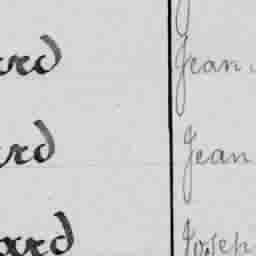 ard Jean
ard Jean
ard Joseph